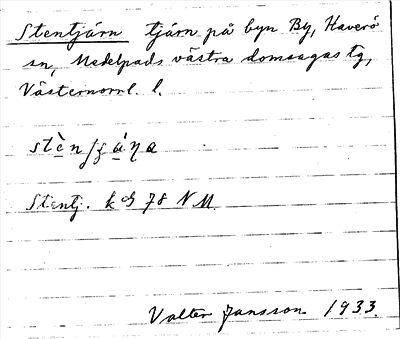 Stentjärn tjärn på byn By, Haverö
sn, Medelpads västra domsagas tg,
Västernorrl. l.
Stentj. 78 NM
Valter Jansson 1933.